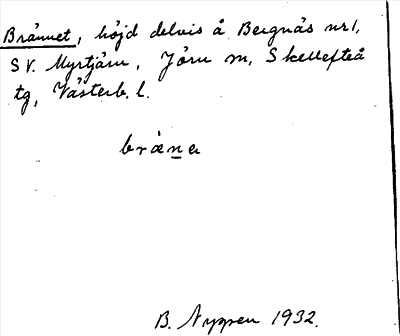 Brännet, höjd delvis å Bergnäs nr 1,
SV. Myrtjärn, Jörn sn, Skellefteå
tg, Västerb. l.
bränₑ
B. Nyppen 1932.